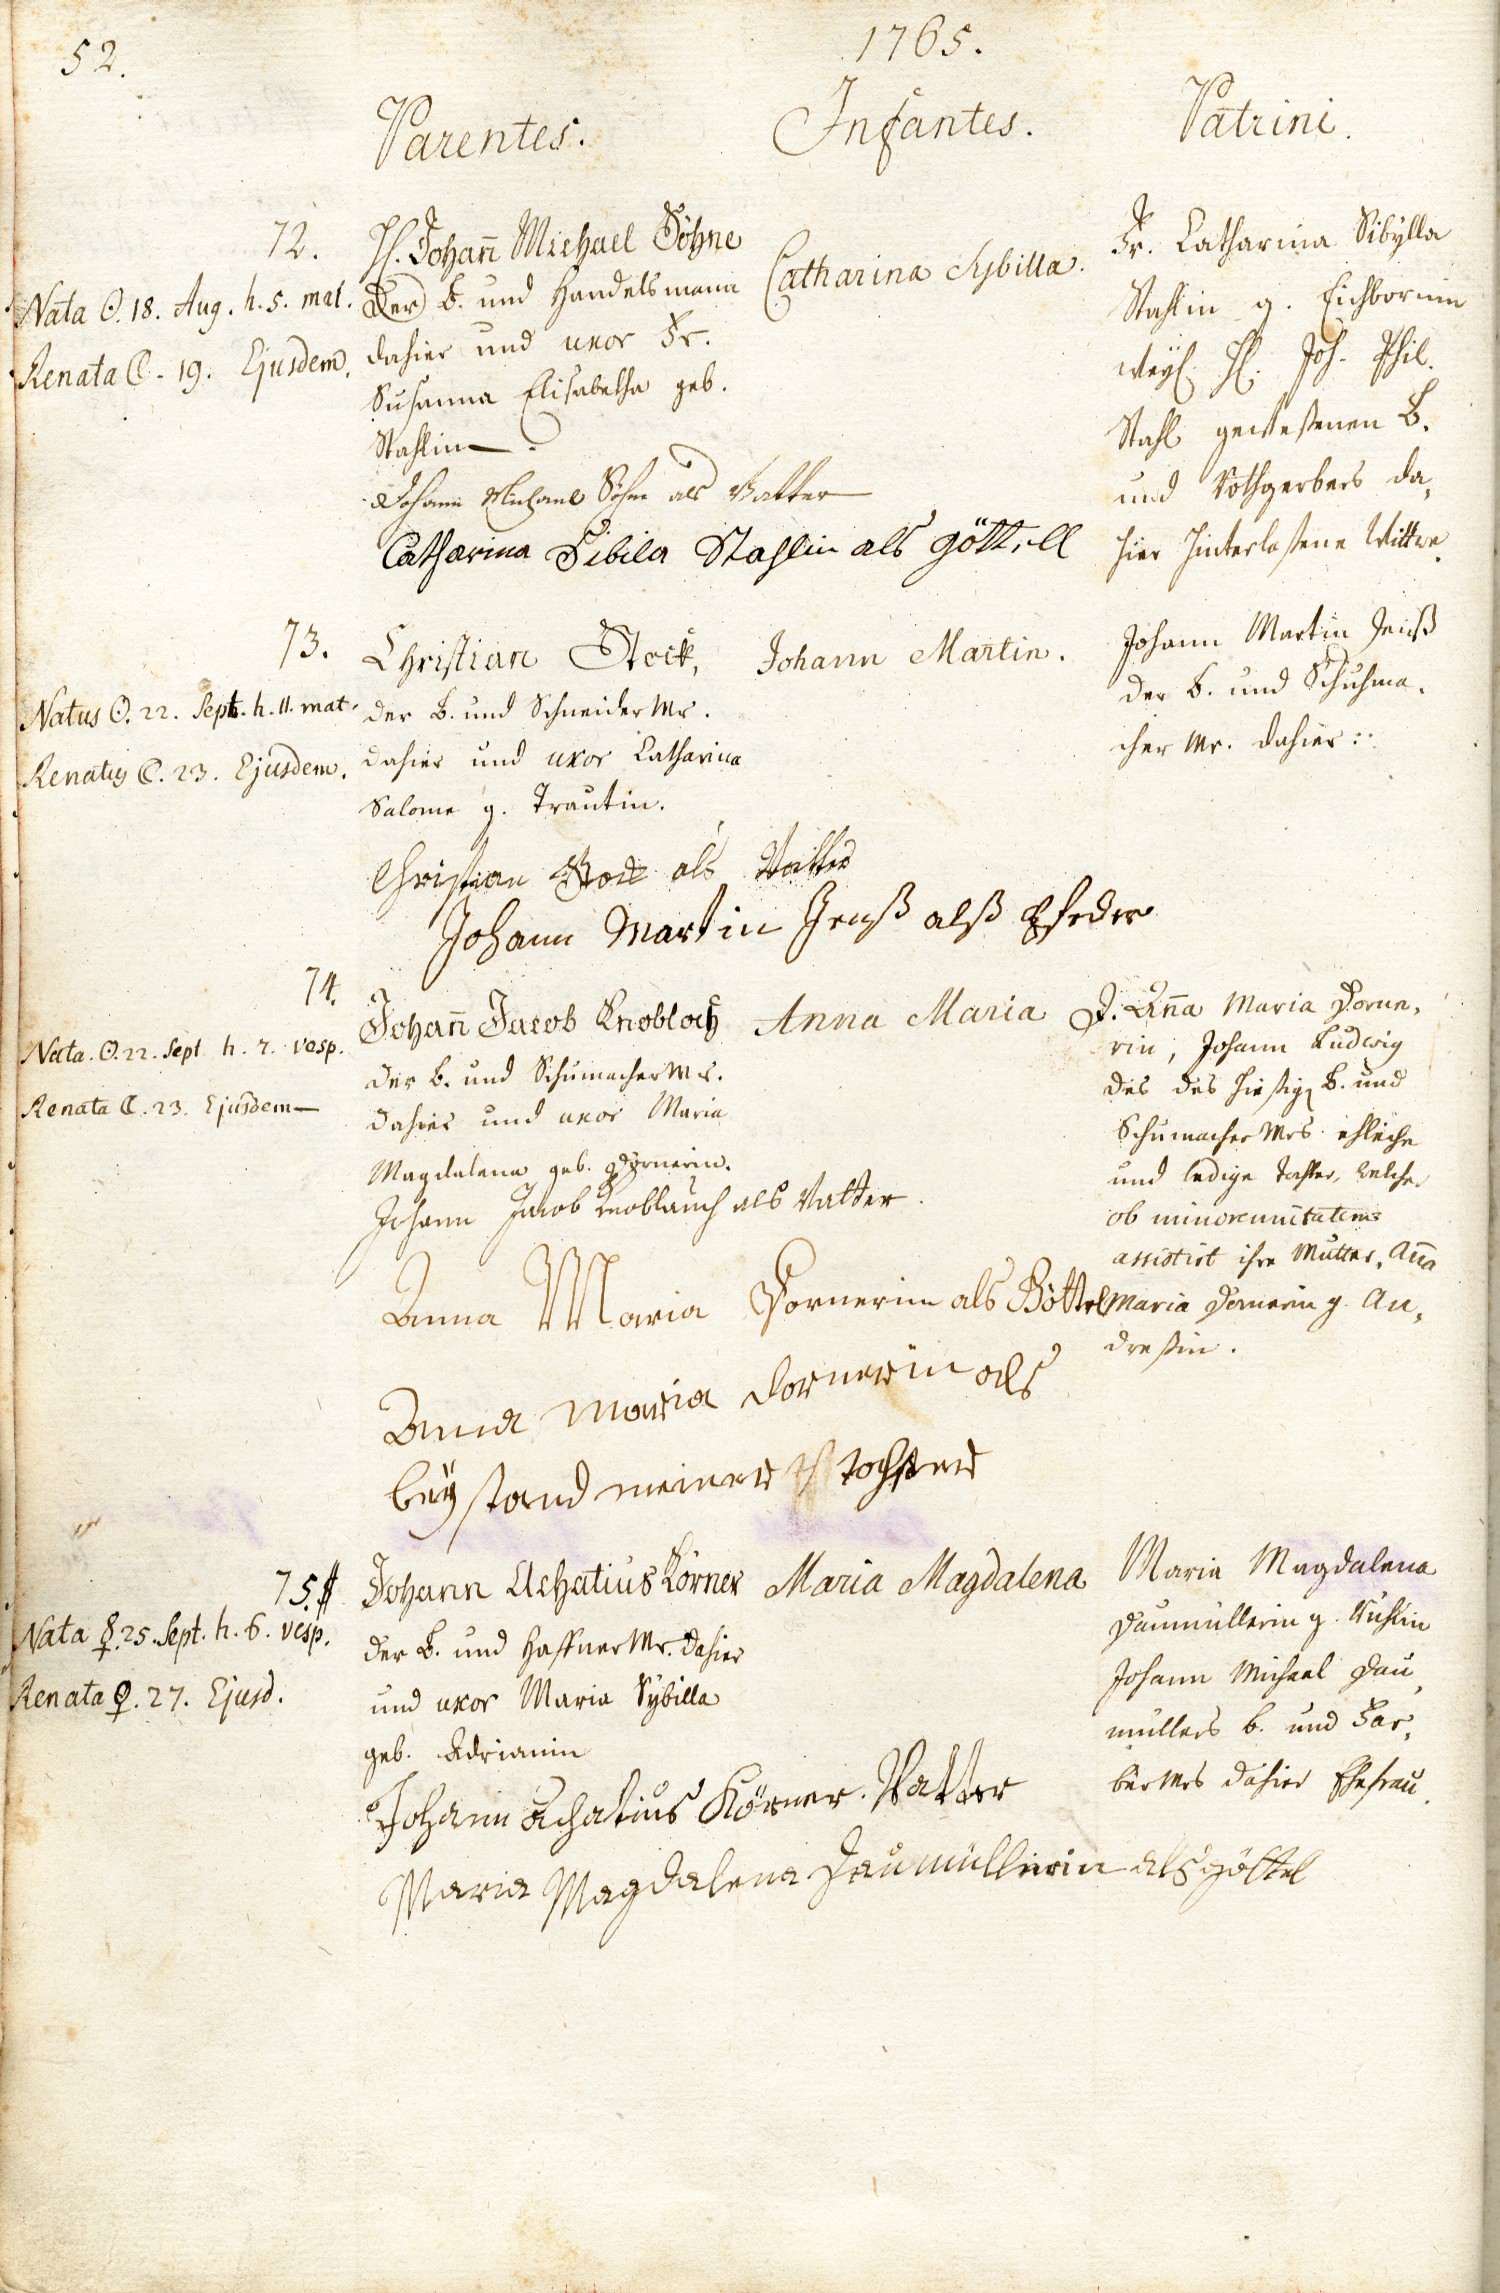 52.
1765.
Parentes.
Infantes.
Patrini.
72.
Nata ☉. 18. Aug. h. 5. mat.
Renata ☾. 19. Ejusdem.
H. Johan̄ Michael Söhne
der B. und Handelsmann
dahier und uxor Fr.
Susanna Elisabetha geb.
Stahlin.
Catharina Sybilla.
Fr. Catharina Sibÿlla
Stahlin g. Eichbornin
weyl. H. Joh. Phil.
Stahl geweßenen B.
und Rothgerbers da,
hier hinterlaßene Wittwe.
Johann Michael Söhne als Vatter
Catharina Sibila Stahlin als göttell
73.
Natus ☉. 22. Sept. h. 11. mat.
Renatus ☾. 23. Ejusdem.
Christian Stock,
der B. und Schneider Mr.
dahier und uxor Catharina
Salome g. Trautin.
Johann Martin.
Johann Martin Jenß
der B. und Schuhma,
cher Mr. dahier
Christian Stock als Vatter
Johann Martin Jenß alß Pfeder
74.
Nata. ☉. 22. Sept h. 7. vesp.
Renata ☾. 23. Ejusdem
Johan̄ Jacob Knobloch
der B. und Schumacher Mr.
dahier und uxor Maria
Magdalena geb. Dornerin.
Anna Maria
J. An̄a Maria Dorne,
rin, Johann Ludwig
des des hießig B. und
Schumacher Mrs ehliche
und ledige Tochter, welche
ob minorennitatem
assistirt ihre Mutter, An̄a
Maria Dornerin g. An,
dreßin.
Johann Jacob Knoblauch als Vatter.
Anna Maria Dornerin als Göttel
Anna Maria Dornerin als
beÿstand meiner tochter
75.
Nata ☿. 25. Sept. h. 6. vesp.
Renata ♀. 27. Ejusd.
Johann Achatius Körner
der B. und Haffner Mr. dahier
und uxor Maria Sÿbilla
geb. Adrianin
Maria Magdalena
Maria Magdalena
Daumüllerin g. Kuhlin
Johann Michael Dau,
müllers B. und Fär,
ber Mrs dahier Ehefrau.
Johann Achatius Körner. Vatter
Maria Magdalena Daumüllerin als göttel